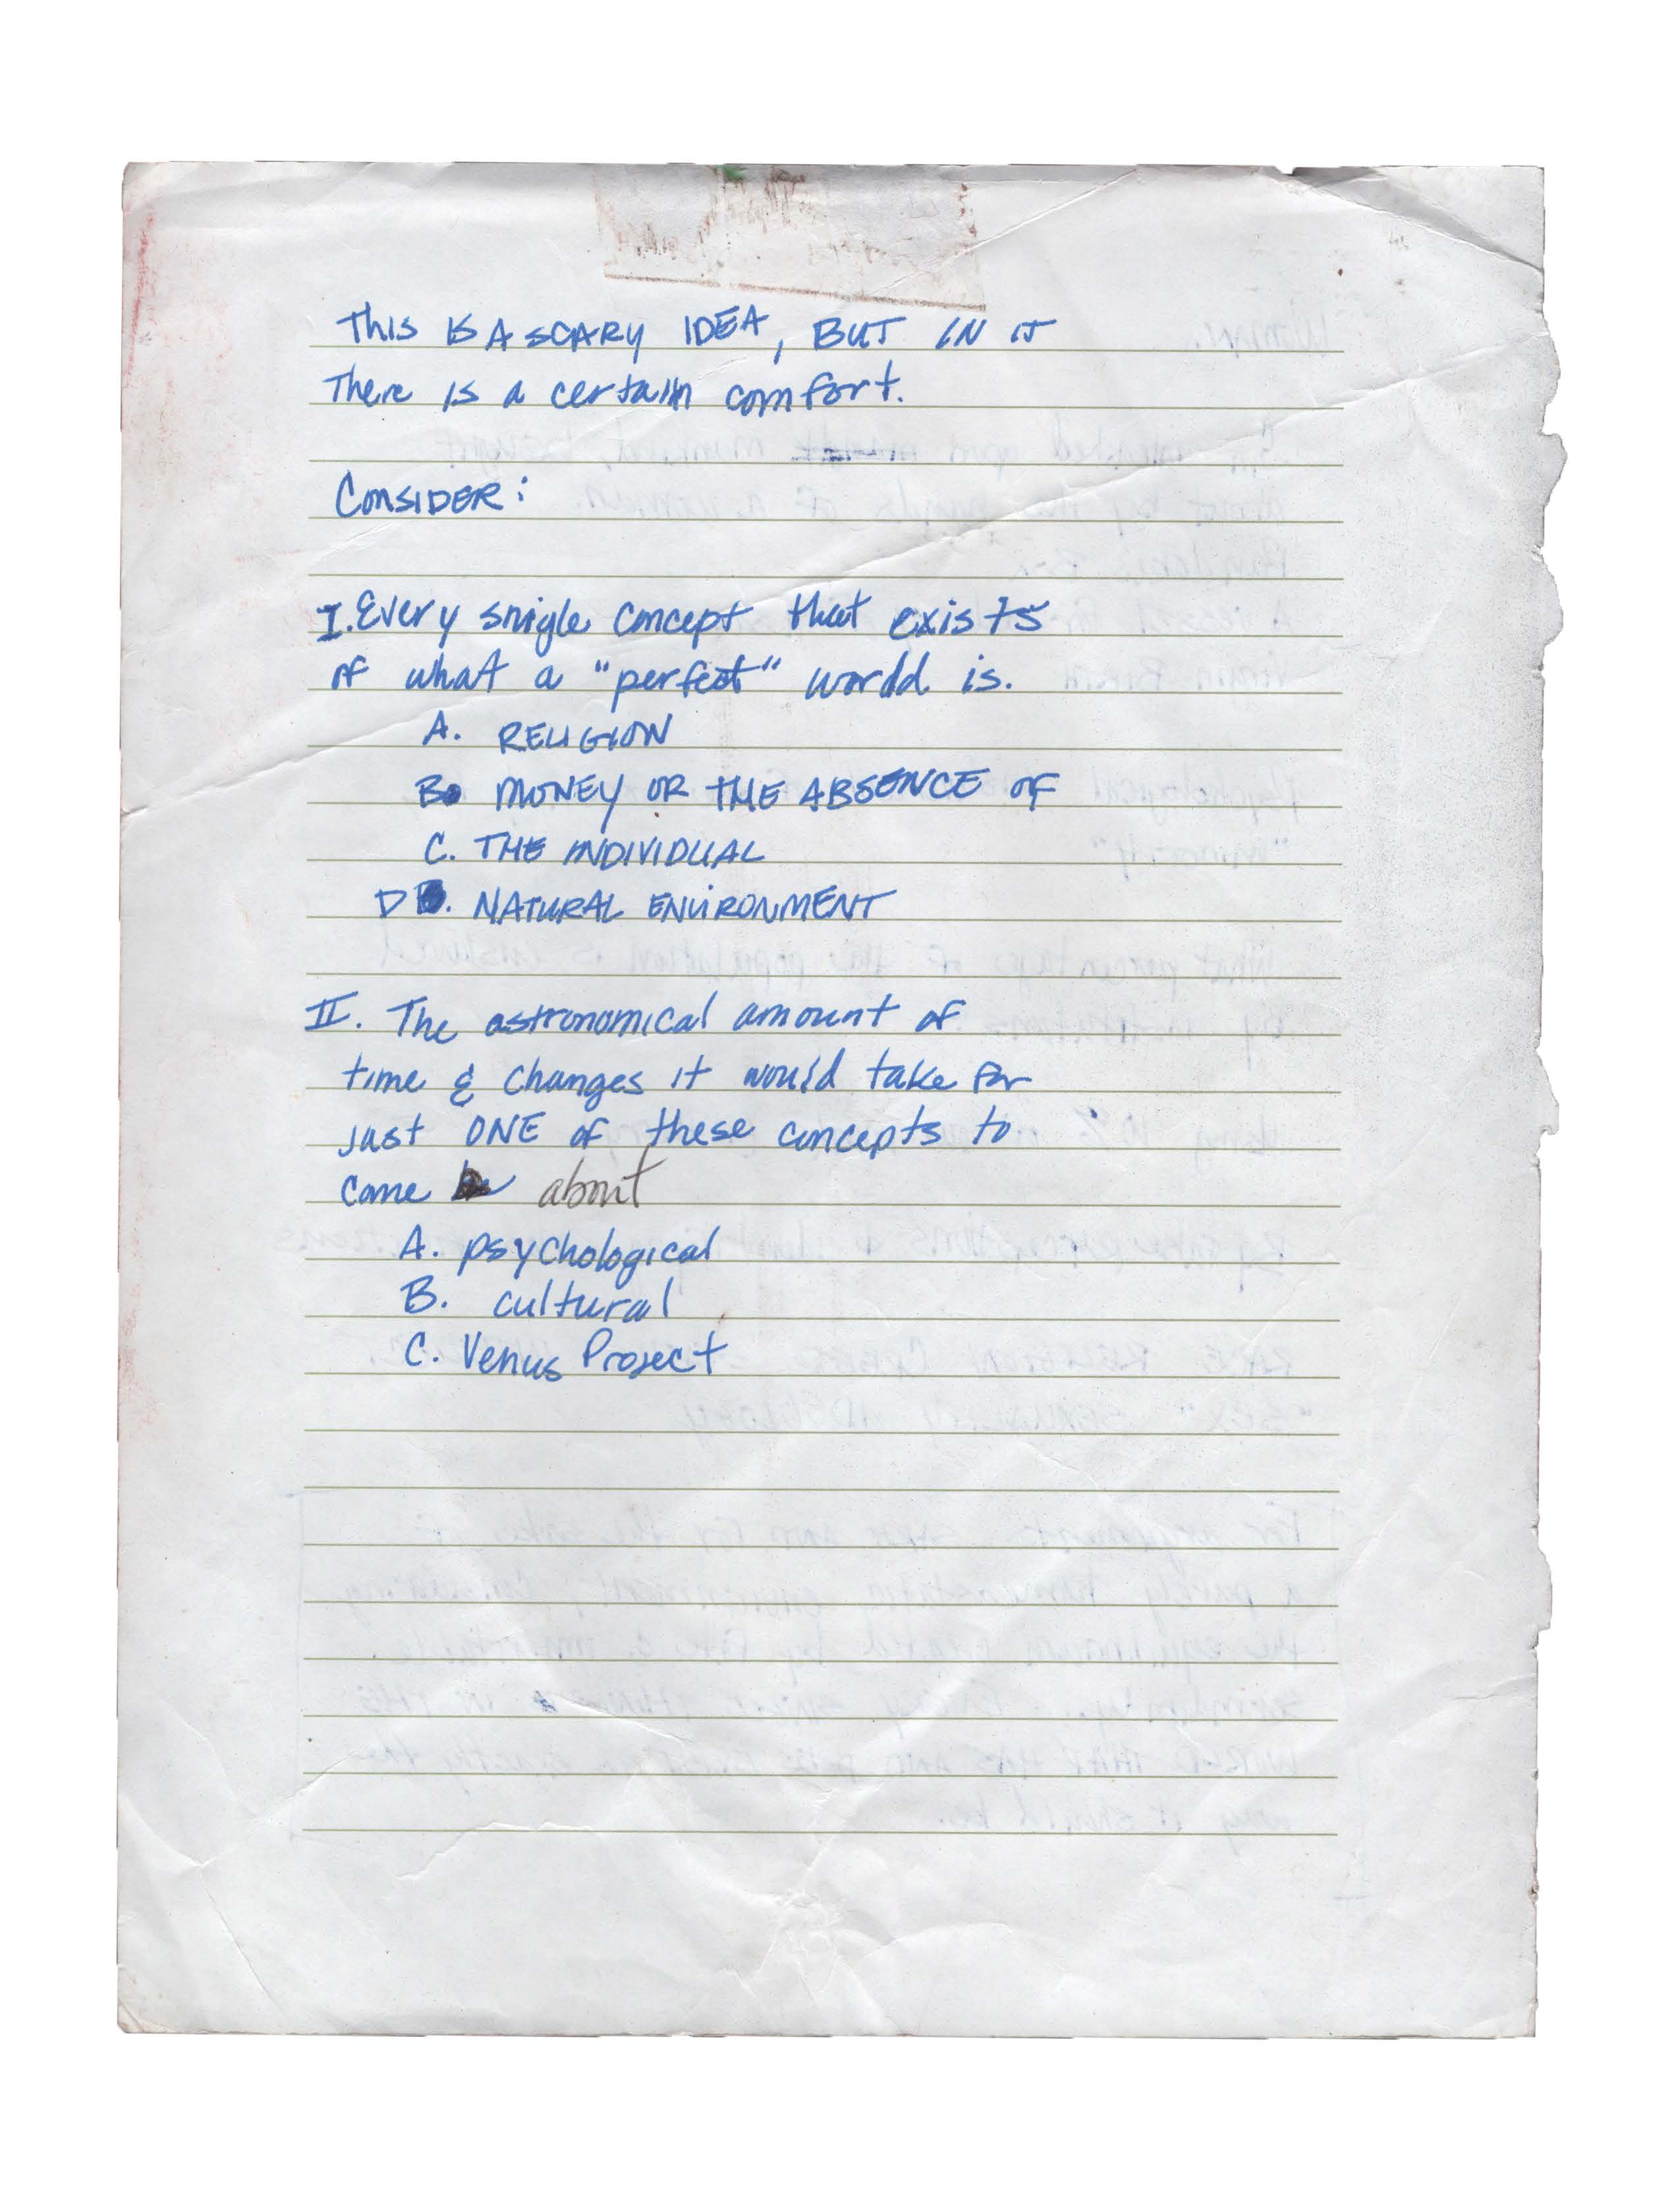 THIS IS A SCARY IDEA, BUT IN IT
There is a certain comfort.
CONSIDER:
I. Every single concept that exists
of what a "perfect" world is.
A. RELIGION
B. MONEY OR THE ABSENCE OF
C. THE INDIVIDUAL
D. NATURAL ENVIRONMENT
II. The astronomical amount of
time & changes it would take for
just ONE of these concepts to
come about
A. psychological
B. cultural
C. Venus Project